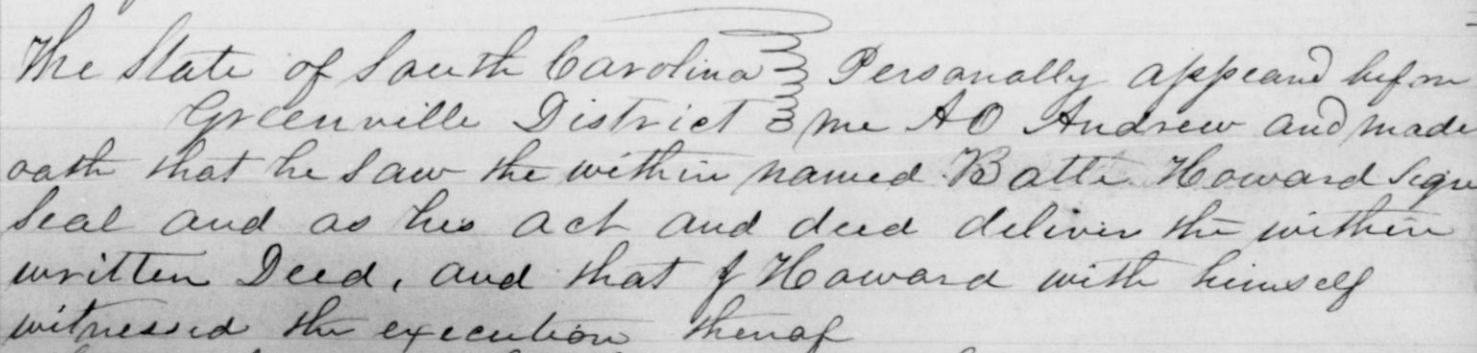 The State of South Carolina } Personally appeard before
Greenville District } me A O Andrew and made
oath that he saw the within named Batte Howard sign
seal and as his act and deed deliver the within
written Deed, and that J Howard with himself
witnessed the execution thereof